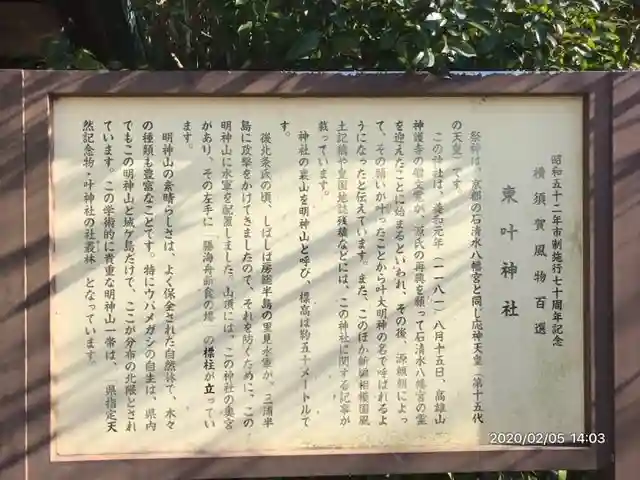 昭和五十二年市制施行七十周年記念
横須賀風物百選
東叶神社
祭神は、京都の石清水八幡宮と同じ応神天皇（第十五代
の天皇）です。
この社は、養和元年（一一八一）八月十五日、高雄山
神護寺の僧文覚が、源氏の再興を願って石清水八幡宮の霊
を迎えたことに始まるといわれ、その後、源頼朝によっ
て、その願いが叶ったことから叶大明神の名で呼ばれるよ
うになったと伝えています。また、このほか新編相模国風
土記稿や皇国地誌残稿などには、この神社に関する記事が
載っています。
神社の裏山を明神山と呼び、標高は約五十メートルで
す。
後北条氏の頃、しばしば房総半島の里見水軍が、三浦半
島に攻撃をかけてきましたので、それを防ぐために、この
明神山に水軍を配置しました。山頂には、この神社の奥宮
があり、その左手に「勝海舟断食の場」の標柱が立ってい
ます。
明神山の素晴らしさは、よく保全された自然林で、木々
の種類も豊富なことです。特にウバメガシの自生は、県内
でもこの明神山と城ケ島だけで、ここが分布の北限とされ
ています。この学術的に貴重な明神山一帯は、県指定天
然記念物・叶神社の社叢林となっています。
2020/02/05 14:03